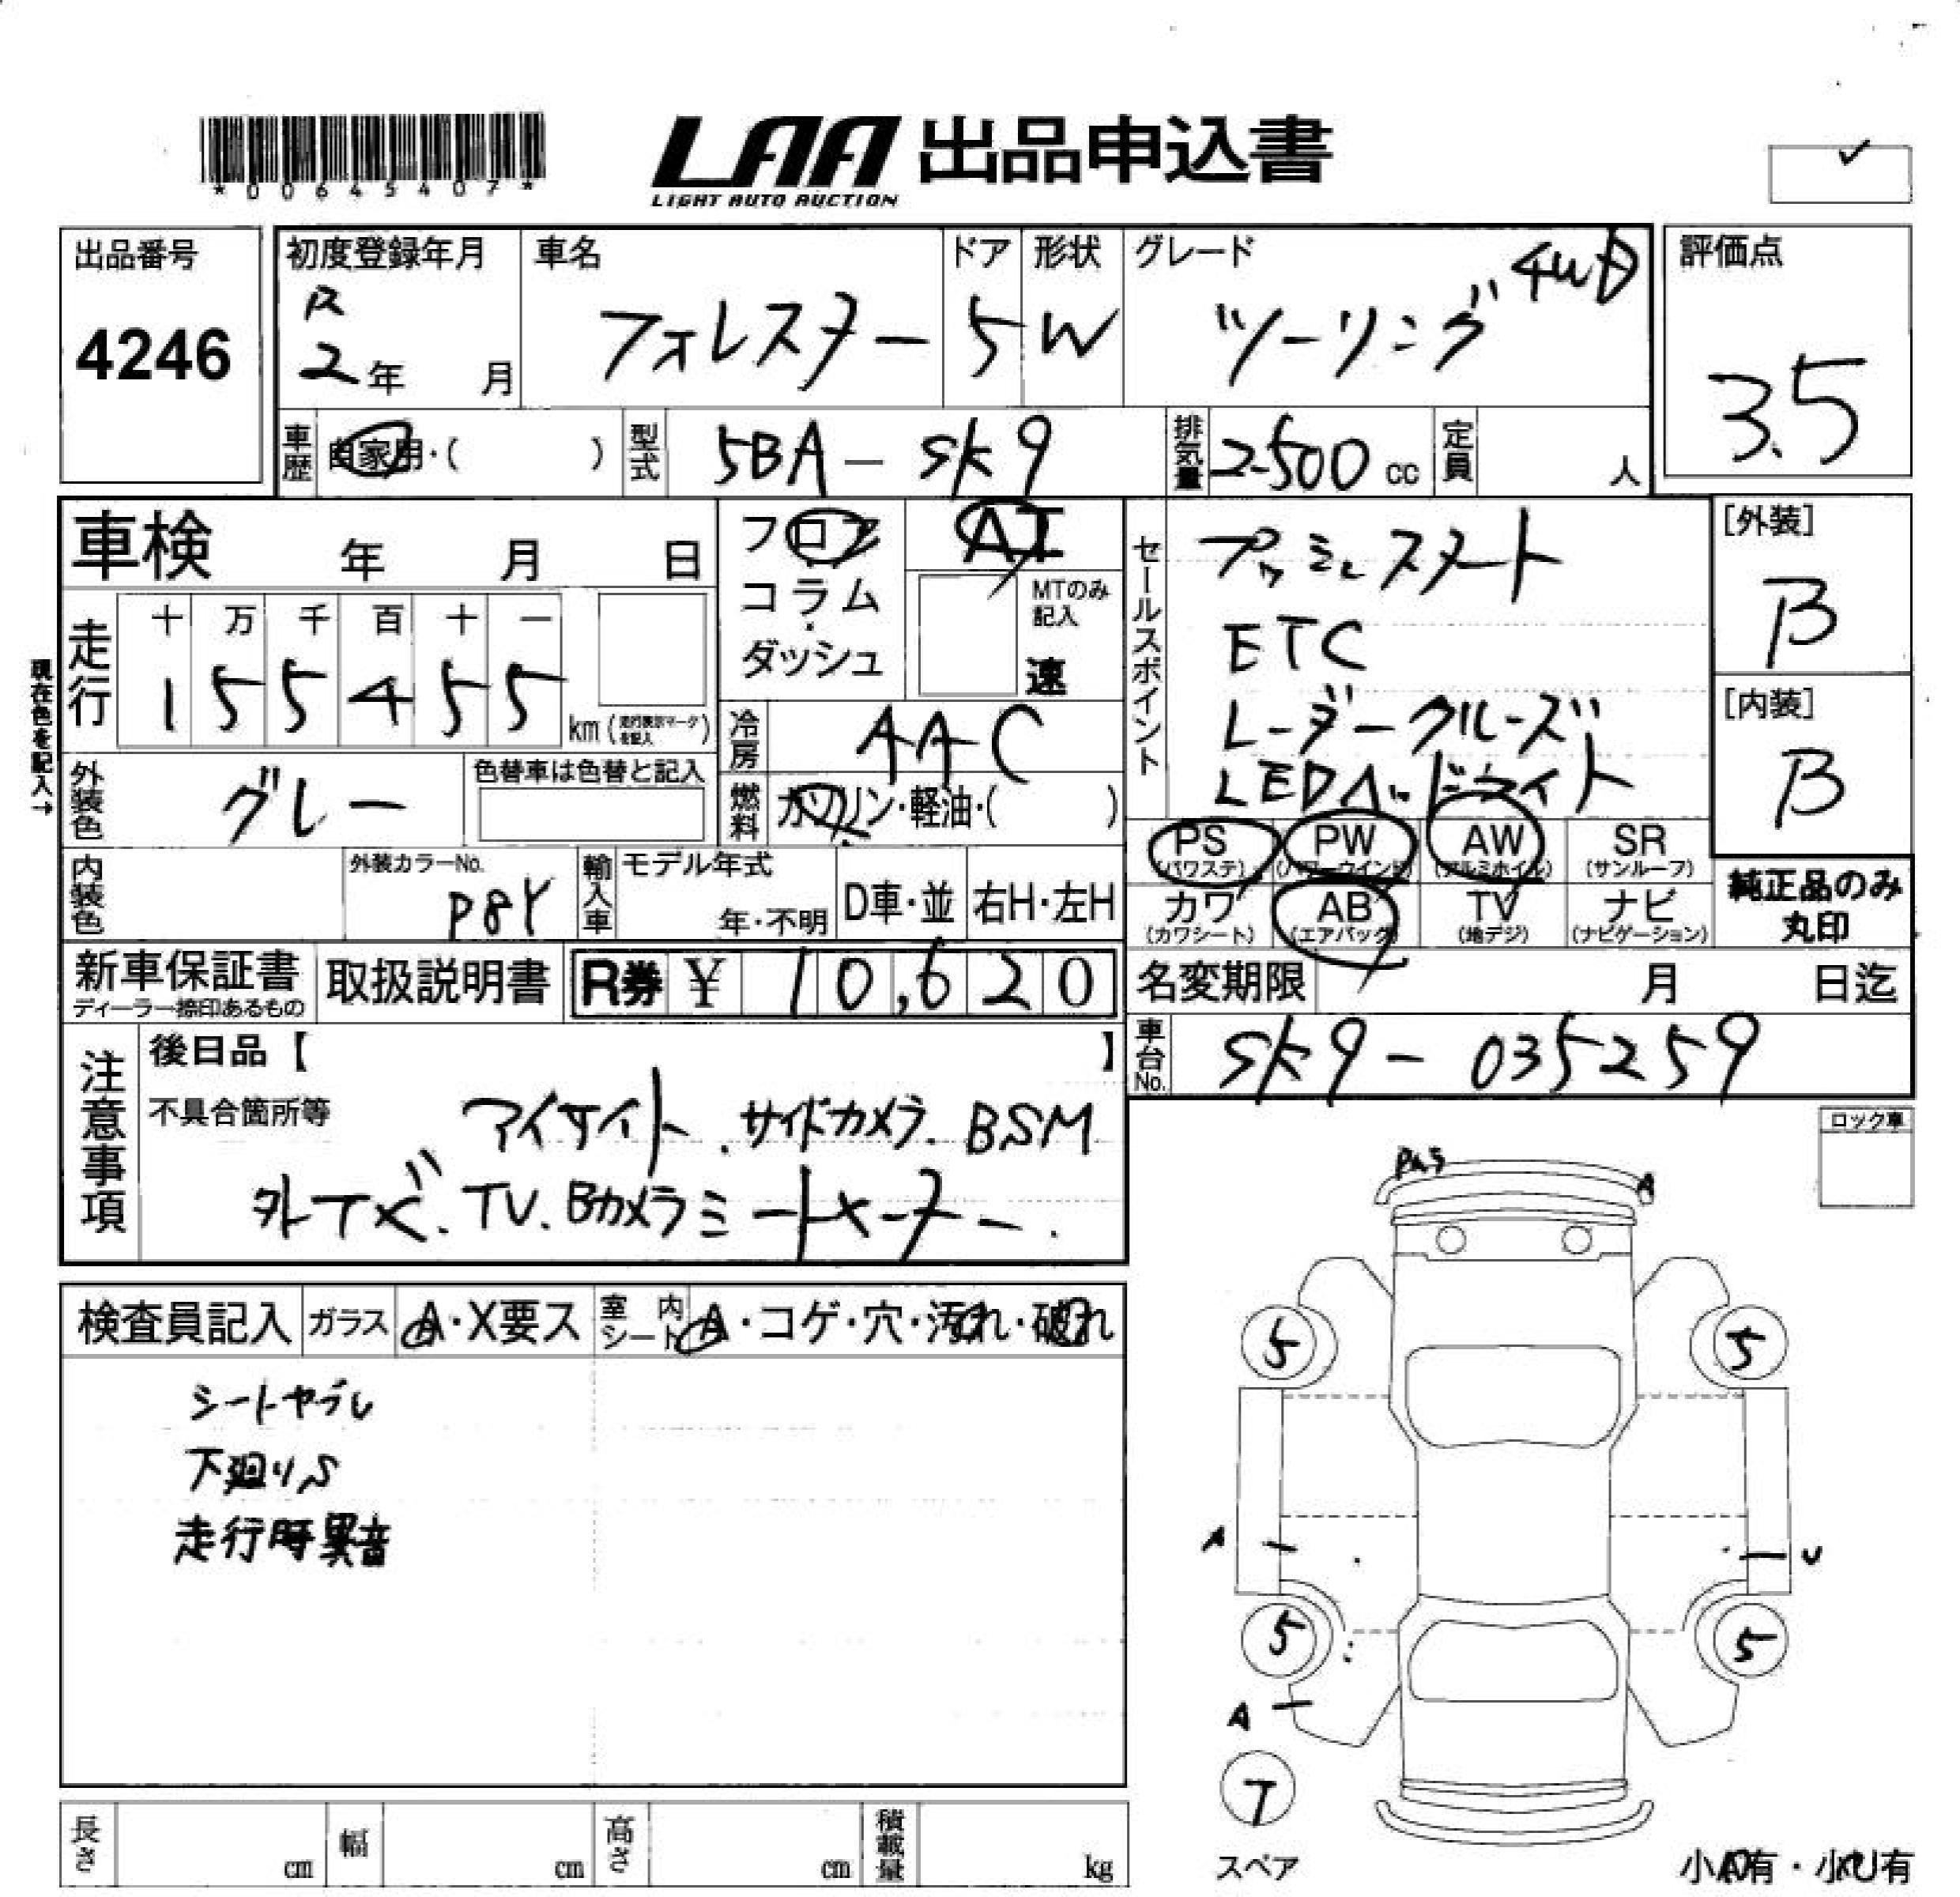 *00645407*
LAA 出品申込書
LIGHT AUTO AUCTION
出品番号
4246
初度登録年月
R
2年 月
車名
フォレスター
ドア
5
形状
W
グレード
ツーリング 4WD
評価点
3.5
車歴
自家用・( )
型式
5BA-SK9
排気量
2500 cc
定員
人
車検 年 月 日
フロア
コラム
ダッシュ
AT
MTのみ
記入
速
セールスポイント
プッシュスタート
ETC
レーダークルーズ
LEDヘッドライト
[外装]
B
[内装]
B
現在色を記入→
走行
十 万 千 百 十 一
1 5 5 4 5 5
km (走行表示マークを記入)
冷房
AAC
外装色
グレー
色替車は色替と記入
燃料
ガソリン・軽油・( )
PS PW AW SR
(パワステ) (パワーウインド) (アルミホイル) (サンルーフ)
カワ AB TV ナビ
(カワシート) (エアバック) (地デジ) (ナビゲーション)
純正品のみ
丸印
内装色
外装カラーNo.
P8Y
輸入車
モデル年式
年・不明
D車・並
右H・左H
新車保証書
ディーラー捺印あるもの
取扱説明書
R券 ¥ 10,620
名変期限 月 日迄
車台No.
SK9-035259
注意事項
後日品【 】
不具合箇所等
アイサイト.サイドカメラ.BSM
外ナビ.TV.Bカメラ ミートメーター.
ロック車
検査員記入
ガラス
A・X要ス
室内
シート
A・コゲ・穴・汚れ・破れ
シートヤブレ
下廻りS
走行時異音
A
5 5
A U
5 5
A
T
スペア
小A有・小U有
長さ cm
幅 cm
高さ cm
積載量 kg